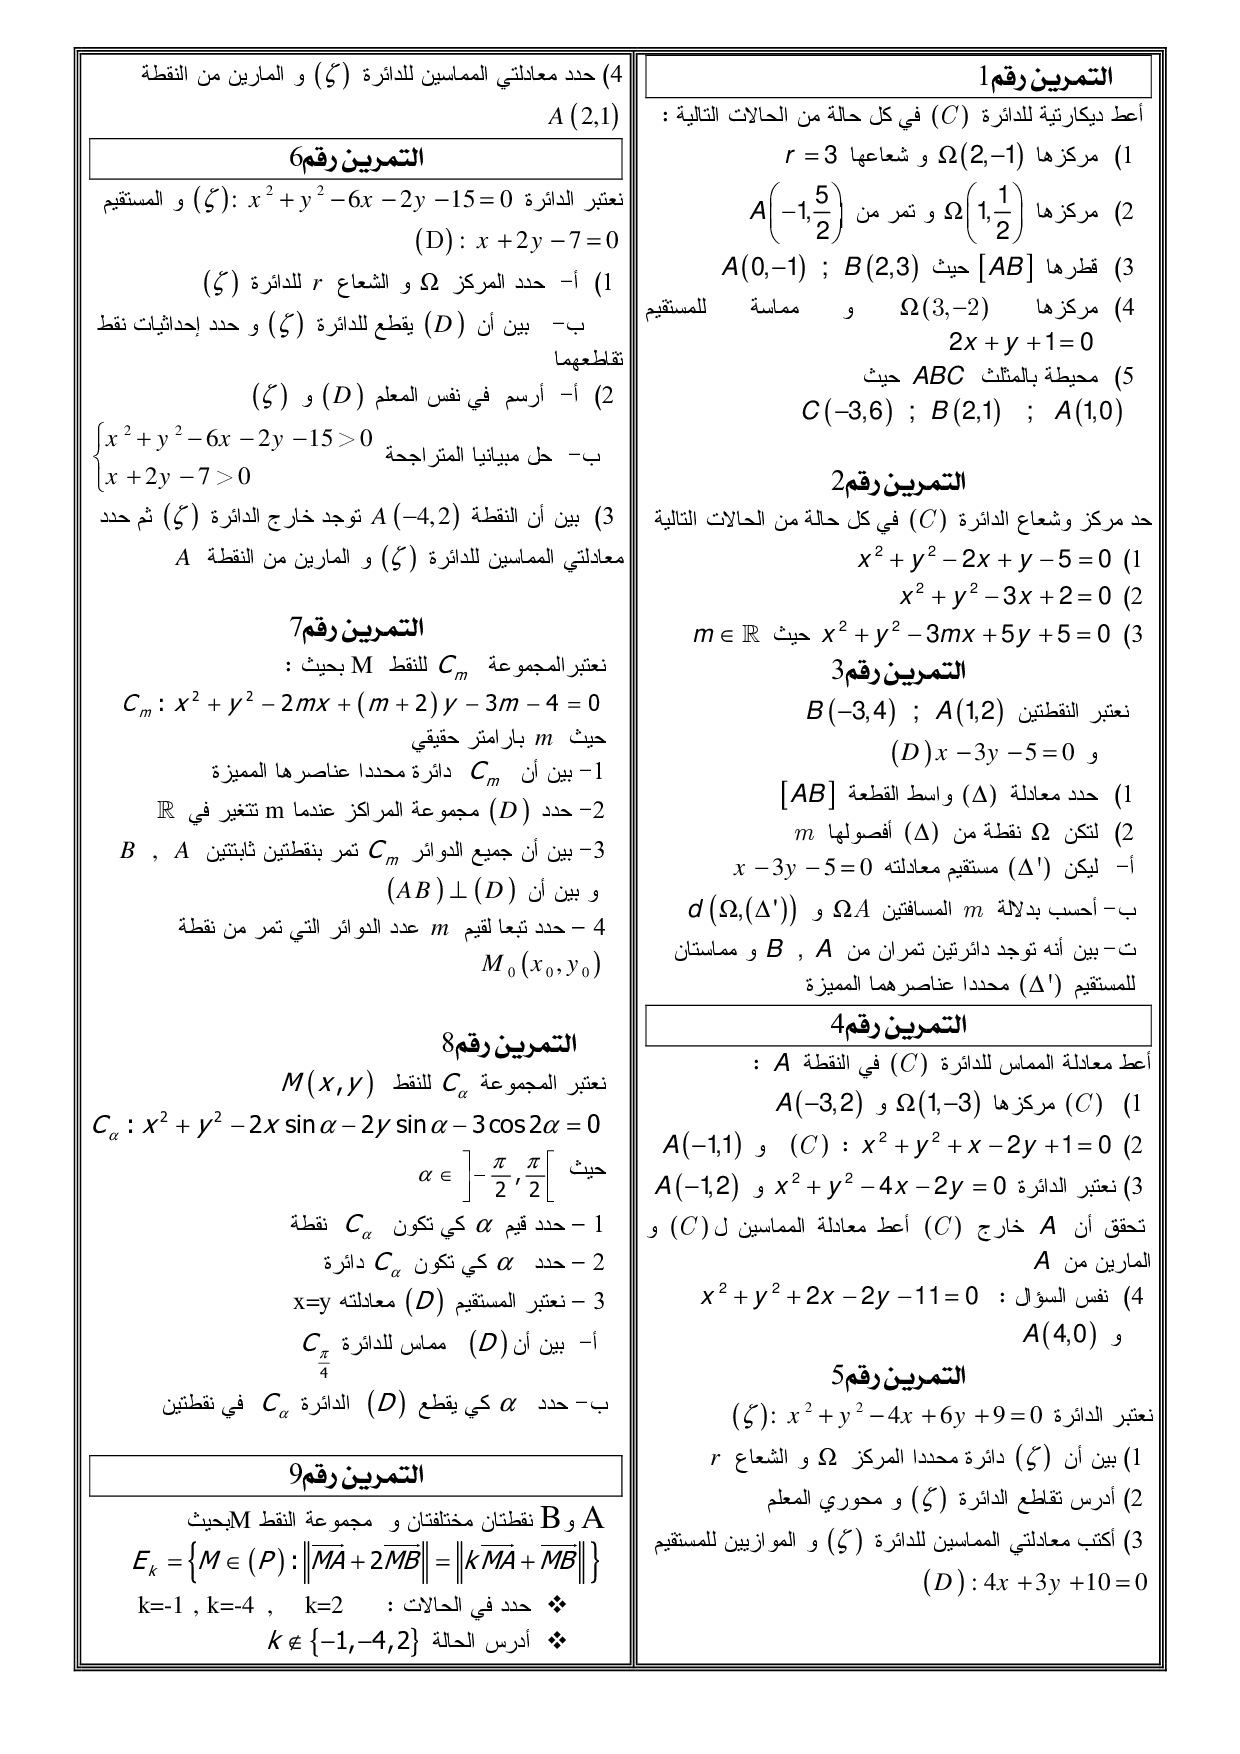 التمرين رقم1
أعط ديكارتية للدائرة (C) في كل حالة من الحالات التالية :
1) مركزها Ω(2,−1) و شعاعها r = 3
2) مركزها Ω(1, 1/2) و تمر من A(−1, 5/2)
3) قطرها [AB] حيث A(0,−1) ; B(2,3)
4) مركزها Ω(3,−2) و مماسة للمستقيم
2x + y + 1 = 0
5) محيطة بالمثلث ABC حيث
C(−3,6) ; B(2,1) ; A(1,0)
التمرين رقم2
حد مركز وشعاع الدائرة (C) في كل حالة من الحالات التالية
1) x² + y² − 2x + y − 5 = 0
2) x² + y² − 3x + 2 = 0
3) x² + y² − 3mx + 5y + 5 = 0 حيث m ∈ ℝ
التمرين رقم3
نعتبر النقطتين B(−3,4) ; A(1,2)
و (D) x − 3y − 5 = 0
1) حدد معادلة (Δ) واسط القطعة [AB]
2) لتكن Ω نقطة من (Δ) أفصولها m
أ- ليكن (Δ') مستقيم معادلته x − 3y − 5 = 0
ب- أحسب بدلالة m المسافتين ΩA و d(Ω,(Δ'))
ت- بين أنه توجد دائرتين تمران من A , B و مماستان
للمستقيم (Δ') محددا عناصرهما المميزة
التمرين رقم4
أعط معادلة المماس للدائرة (C) في النقطة A :
1) (C) مركزها Ω(1,−3) و A(−3,2)
2) (C) : x² + y² + x − 2y + 1 = 0 و A(−1,1)
3) نعتبر الدائرة x² + y² − 4x − 2y = 0 و A(−1,2)
تحقق أن A خارج (C) أعط معادلة المماسين ل (C) و
المارين من A
4) نفس السؤال : x² + y² + 2x − 2y − 11 = 0
و A(4,0)
التمرين رقم5
نعتبر الدائرة (ζ): x² + y² − 4x + 6y + 9 = 0
1) بين أن (ζ) دائرة محددا المركز Ω و الشعاع r
2) أدرس تقاطع الدائرة (ζ) و محوري المعلم
3) أكتب معادلتي المماسين للدائرة (ζ) و الموازيين للمستقيم
(D) : 4x + 3y + 10 = 0
4) حدد معادلتي المماسين للدائرة (ζ) و المارين من النقطة
A(2,1)
التمرين رقم6
نعتبر الدائرة (ζ): x² + y² − 6x − 2y − 15 = 0 و المستقيم
(D) : x + 2y − 7 = 0
1) أ- حدد المركز Ω و الشعاع r للدائرة (ζ)
ب- بين أن (D) يقطع للدائرة (ζ) و حدد إحداثيات نقط
تقاطعهما
2) أ- أرسم في نفس المعلم (D) و (ζ)
ب- حل مبيانيا المتراجحة { x² + y² − 6x − 2y − 15 > 0
x + 2y − 7 > 0
3) بين أن النقطة A(−4,2) توجد خارج الدائرة (ζ) ثم حدد
معادلتي المماسين للدائرة (ζ) و المارين من النقطة A
التمرين رقم7
نعتبرالمجموعة Cₘ للنقط M بحيث :
Cₘ : x² + y² − 2mx + (m + 2)y − 3m − 4 = 0
حيث m بارامتر حقيقي
1- بين أن Cₘ دائرة محددا عناصرها المميزة
2- حدد (D) مجموعة المراكز عندما m تتغير في ℝ
3- بين أن جميع الدوائر Cₘ تمر بنقطتين ثابتتين A , B
و بين أن (AB) ⊥ (D)
4 – حدد تبعا لقيم m عدد الدوائر التي تمر من نقطة
M₀(x₀, y₀)
التمرين رقم8
نعتبر المجموعة C_α للنقط M(x,y)
C_α : x² + y² − 2x sin α − 2y sin α − 3 cos 2α = 0
حيث α ∈ ]−π/2, π/2[
1 – حدد قيم α كي تكون C_α نقطة
2 – حدد α كي تكون C_α دائرة
3 – نعتبر المستقيم (D) معادلته x=y
أ- بين أن (D) مماس للدائرة C_π/4
ب- حدد α كي يقطع (D) الدائرة C_α في نقطتين
التمرين رقم9
A و B نقطتان مختلفتان و مجموعة النقط M بحيث
E_k = {M ∈ (P) : ‖MA⃗ + 2MB⃗‖ = ‖kMA⃗ + MB⃗‖}
❖ حدد في الحالات : k=-1 , k=-4 , k=2
❖ أدرس الحالة k ∉ {−1,−4,2}